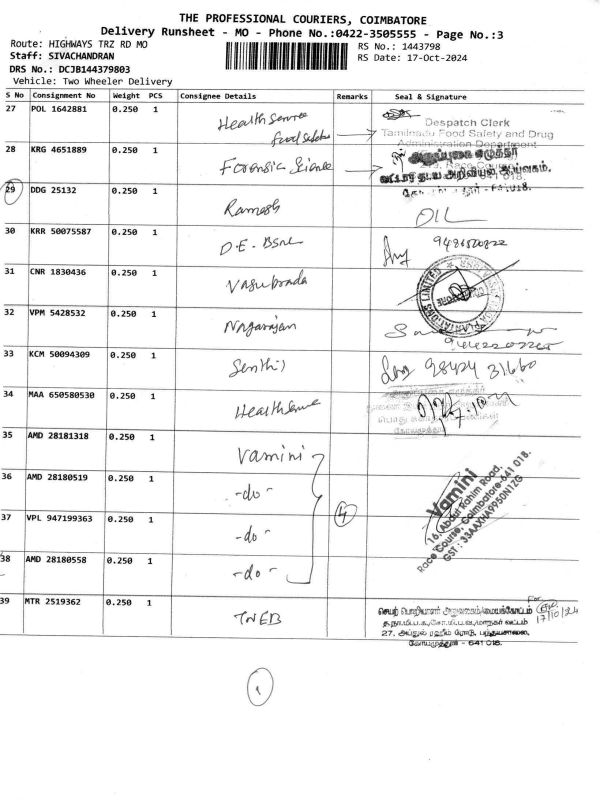 THE PROFESSIONAL COURIERS, COIMBATORE
Delivery Runsheet - MO - Phone No.:0422-3505555 - Page No.:3
Route: HIGHWAYS TRZ RD MO
RS No.: 1443798
Staff: SIVACHANDRAN
RS Date: 17-Oct-2024
DRS No.: DCJB144379803
Vehicle: Two Wheeler Delivery
S No Consignment No Weight PCS Consignee Details Remarks Seal & Signature
27 POL 1642881 0.250 1 Health Service
Despatch Clerk
Tamilnadu Food Safety and Drug
Administration Department
28 KRG 4651889 0.250 1 Forensic Science
29 DDG 25132 0.250 1 Ramesh OIL
30 KRR 50075587 0.250 1 D.E. BSNL
31 CNR 1830436 0.250 1 Vasuprada
PLANTATIONS LIMITED
32 VPM 5428532 0.250 1 Nagarajan
33 KCM 50094309 0.250 1 Senthil 98424 31660
34 MAA 650580530 0.250 1 Health
35 AMD 28181318 0.250 1 Vamini
36 AMD 28180519 0.250 1 -do-
37 VPL 947199363 0.250 1 -do- 4
38 AMD 28180558 0.250 1 -do-
Vamini
16, Abdul Rahim Road,
Race Course, Coimbatore-641 018.
GST : 33AAXHA9950N1ZG
39 MTR 2519362 0.250 1 TNEB
For
செயற் பொறியாளர் அலுவலகம்/மையக்கோட்டம்
17/10/24
27, அப்துல் ரஹீம் ரோடு, பந்தயசாலை,
கோயமுத்தூர் - 641 018.
1